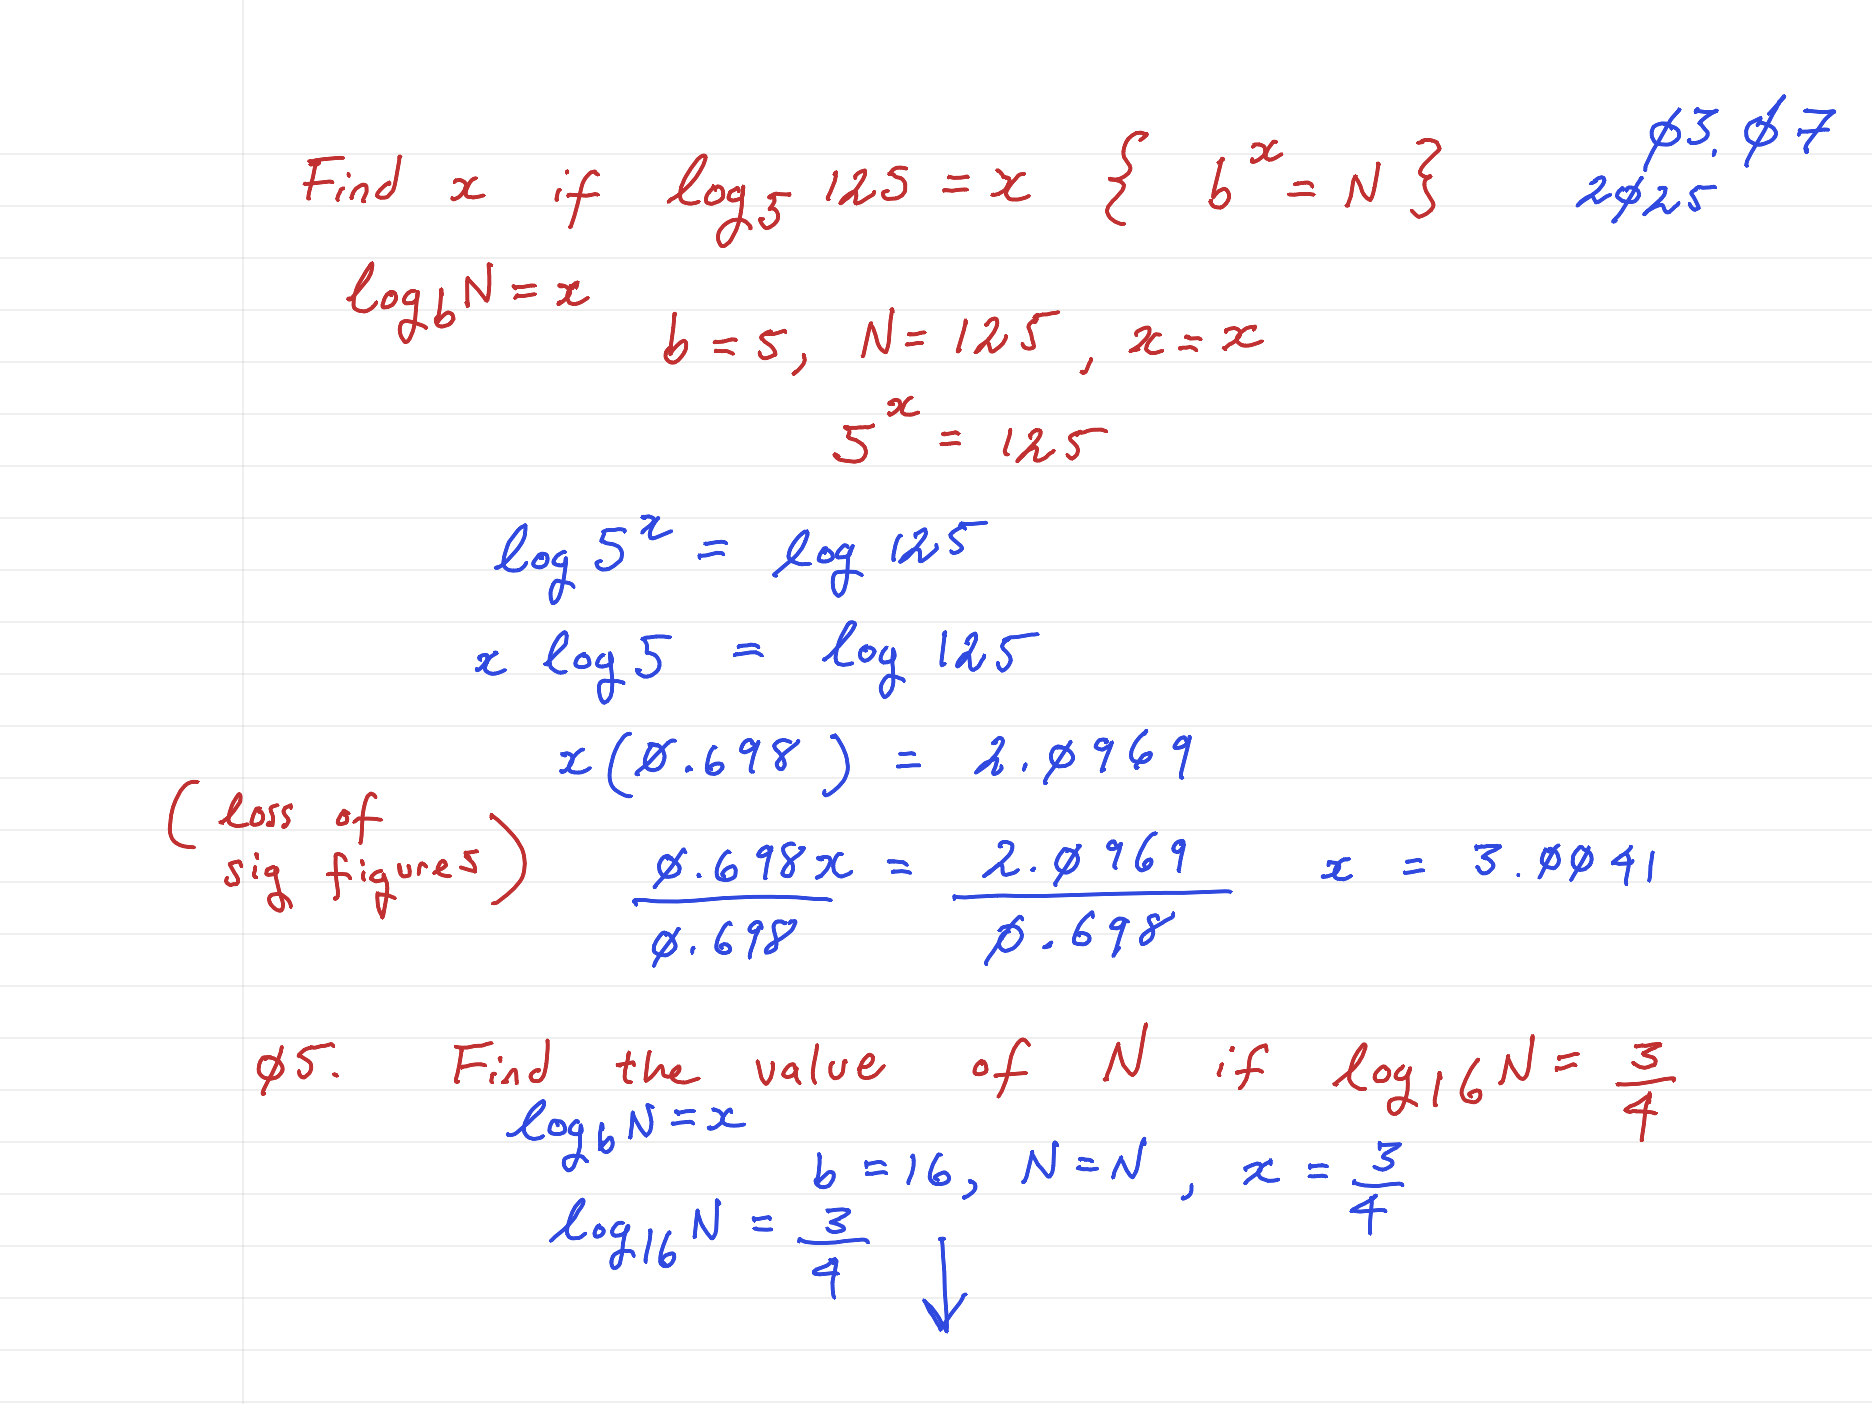 Find x if log₅ 125 = x { bˣ = N } Ø3.Ø7
2Ø25
log_b N = x
b = 5, N = 125, x = x
5ˣ = 125
log 5ˣ = log 125
x log 5 = log 125
x(Ø.698) = 2.Ø969
(loss of
sig figures)
Ø.698x/Ø.698 = 2.Ø969/Ø.698 x = 3.ØØ41
Ø5. Find the value of N if log₁₆ N = 3/4
log_b N = x
b = 16, N = N, x = 3/4
log₁₆ N = 3/4 ↓